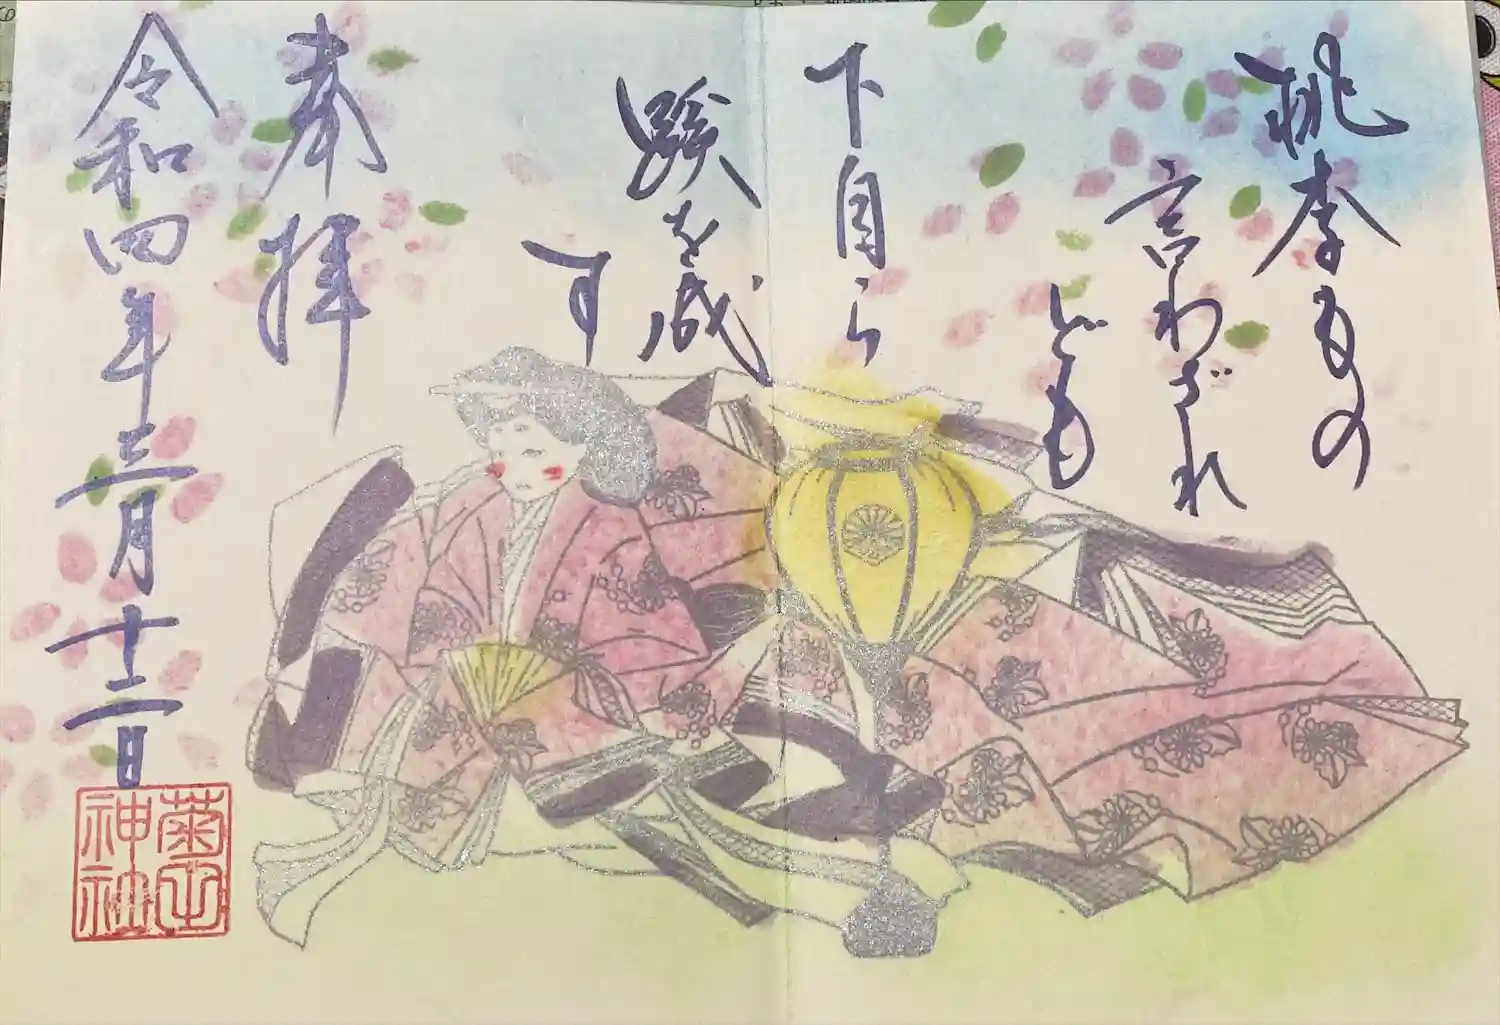 桃李もの
言わざれ
ども
下自ら
蹊を成
す
奉拝
令和四年三月十二日
菊田
神社